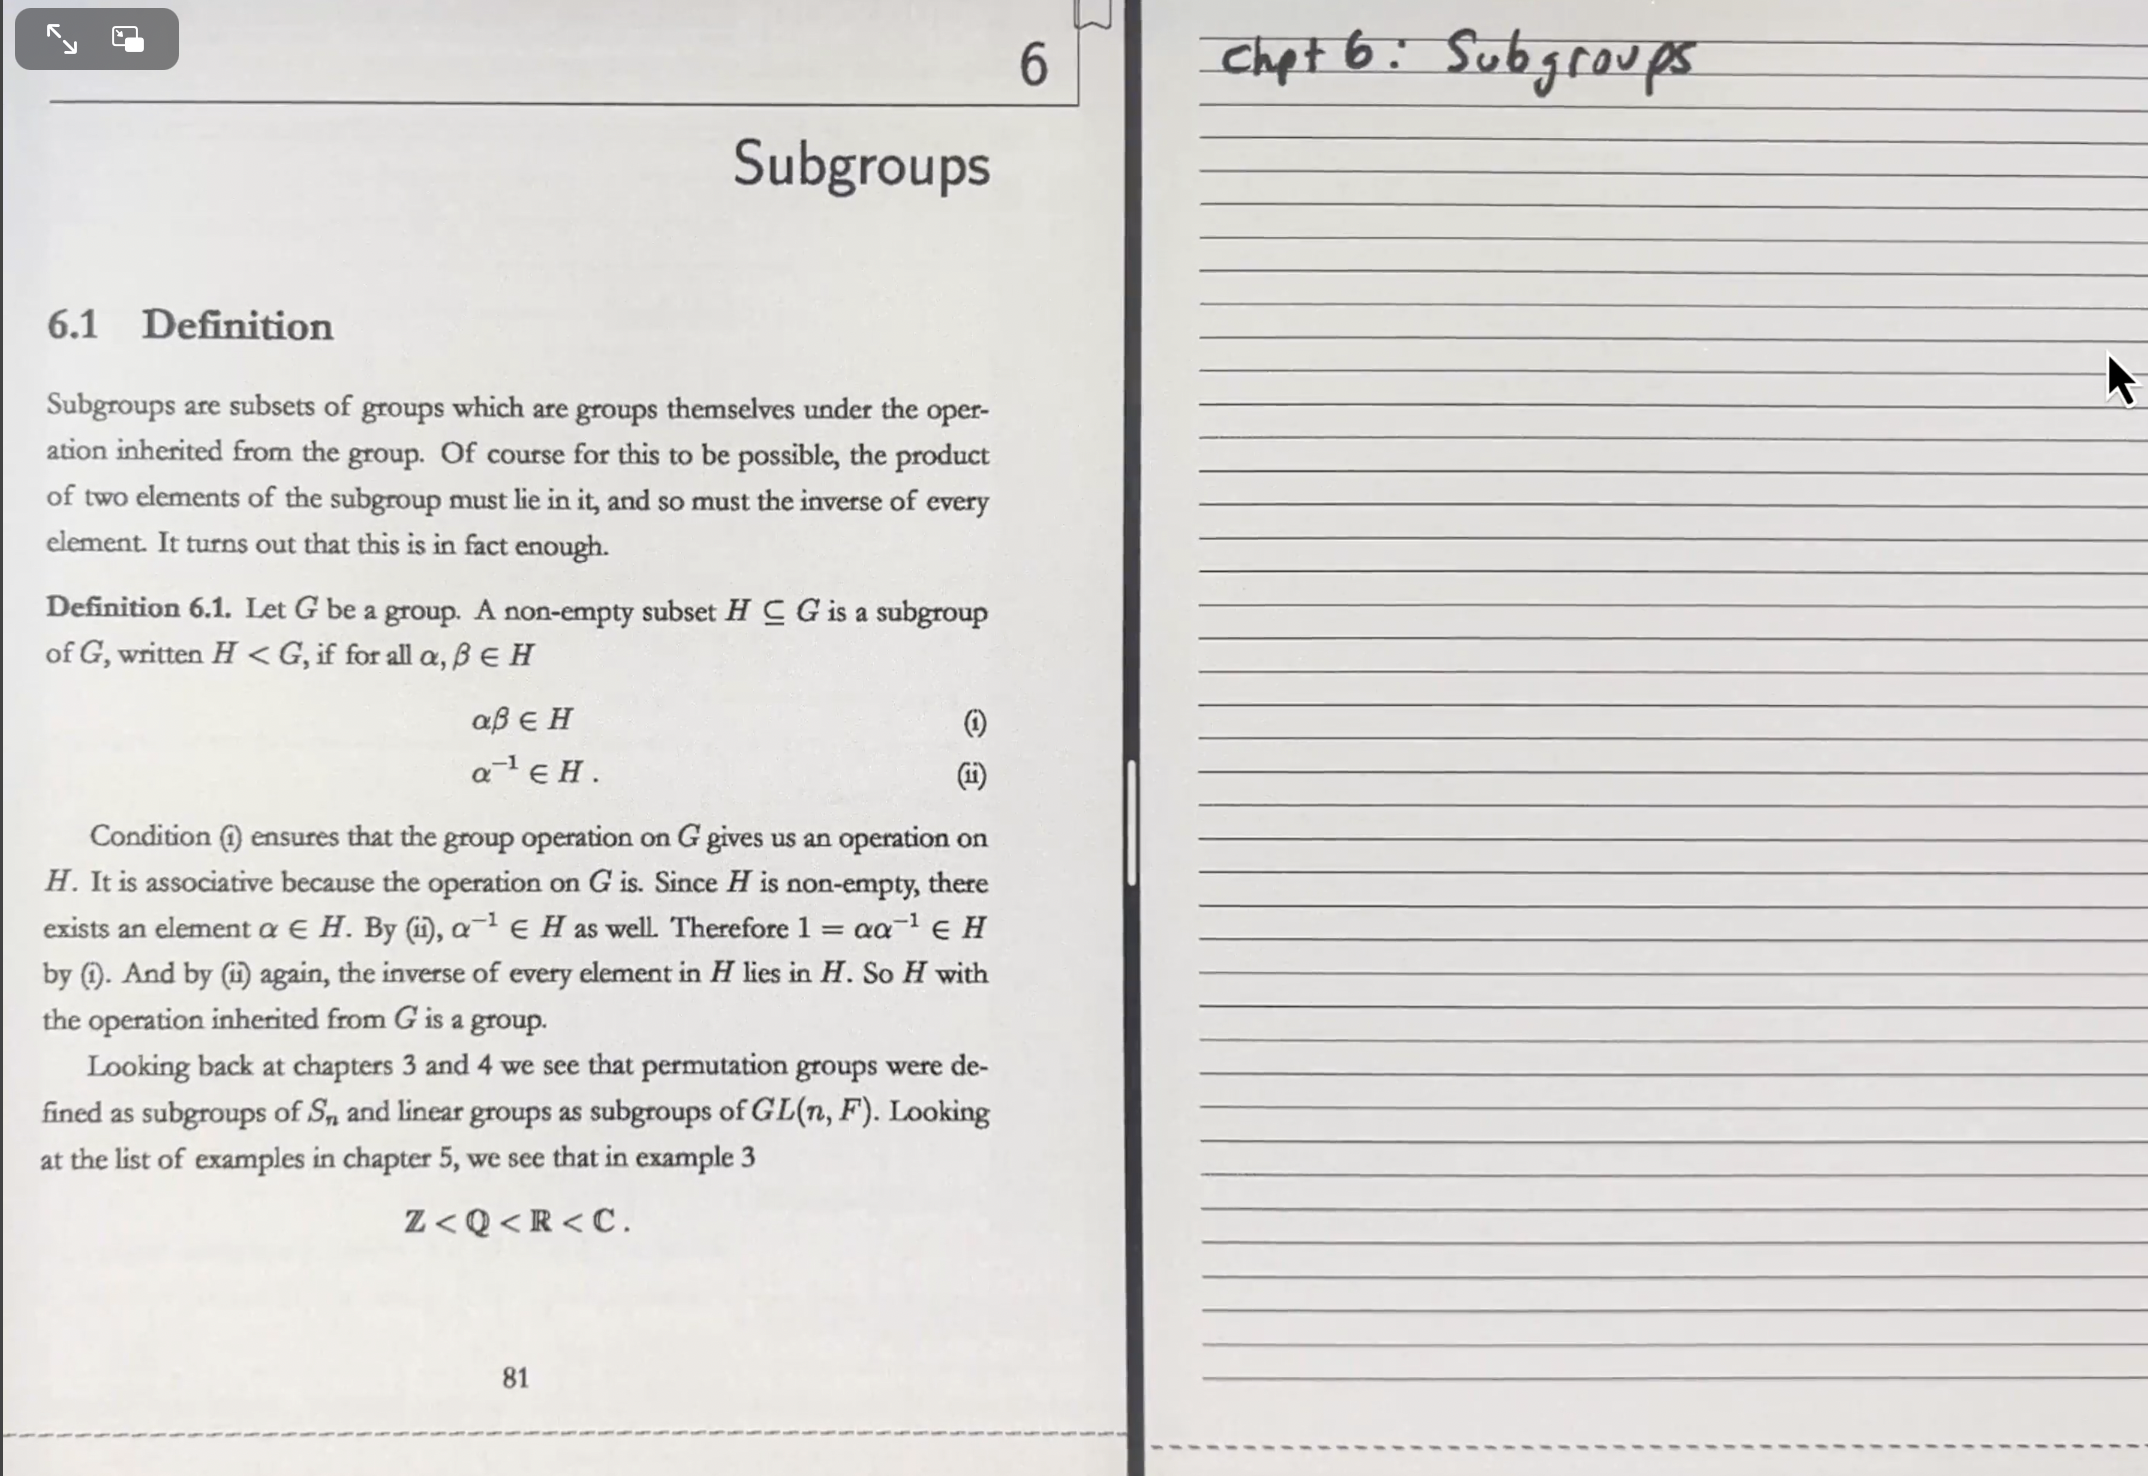 6
Subgroups
6.1 Definition
Subgroups are subsets of groups which are groups themselves under the oper-
ation inherited from the group. Of course for this to be possible, the product
of two elements of the subgroup must lie in it, and so must the inverse of every
element. It turns out that this is in fact enough.
Definition 6.1. Let G be a group. A non-empty subset H ⊆ G is a subgroup
of G, written H < G, if for all α, β ∈ H
αβ ∈ H (i)
α⁻¹ ∈ H . (ii)
Condition (i) ensures that the group operation on G gives us an operation on
H. It is associative because the operation on G is. Since H is non-empty, there
exists an element α ∈ H. By (ii), α⁻¹ ∈ H as well. Therefore 1 = αα⁻¹ ∈ H
by (i). And by (ii) again, the inverse of every element in H lies in H. So H with
the operation inherited from G is a group.
Looking back at chapters 3 and 4 we see that permutation groups were de-
fined as subgroups of Sₙ and linear groups as subgroups of GL(n, F). Looking
at the list of examples in chapter 5, we see that in example 3
ℤ < ℚ < ℝ < ℂ .
81
Chpt 6: Subgroups